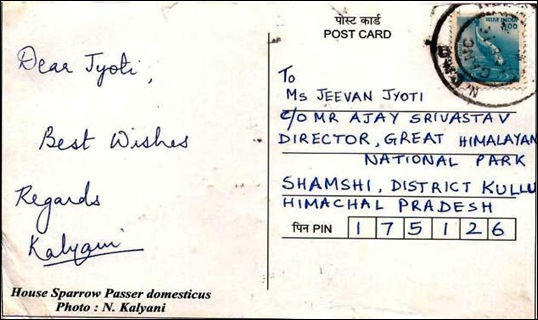 Dear Jyoti,
Best Wishes
Regards
Kalyani
House Sparrow Passer domesticus
Photo : N. Kalyani
पोस्ट कार्ड
POST CARD
भारत INDIA
To
MS JEEVAN JYOTI
C/O MR AJAY SRIVASTAV
DIRECTOR, GREAT HIMALAYAN
NATIONAL PARK
SHAMSHI, DISTRICT KULLU
HIMACHAL PRADESH
पिन PIN 1 7 5 1 2 6